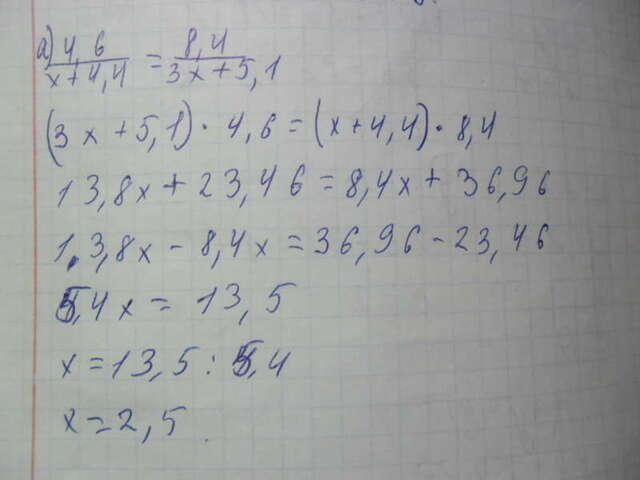 а) 4,6/(x+4,4) = 8,4/(3x+5,1)
(3x+5,1)·4,6=(x+4,4)·8,4
13,8x+23,46=8,4x+36,96
13,8x-8,4x=36,96-23,46
5,4x=13,5
x=13,5:5,4
x=2,5